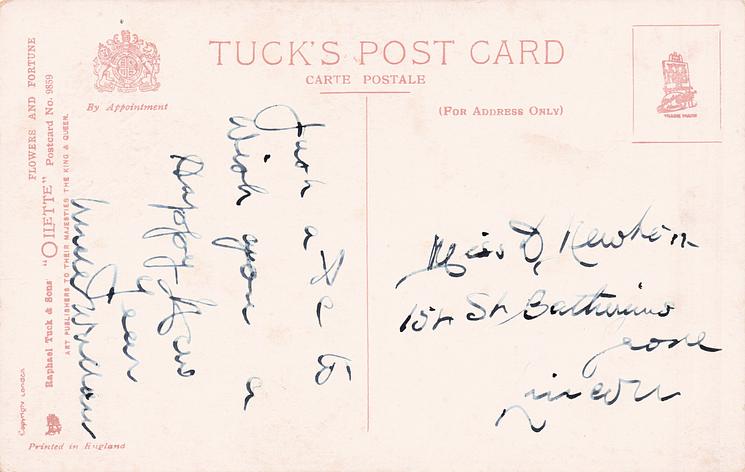 TUCK'S POST CARD
CARTE POSTALE
By Appointment
(FOR ADDRESS ONLY)
TRADE MARK
FLOWERS AND FORTUNE
Raphael Tuck & Sons' "OILETTE" Postcard No. 9859
ART PUBLISHERS TO THEIR MAJESTIES THE KING & QUEEN.
Copyright London
Printed in England
Just a
Wish you a
Happy New
Year
Uncle William
Miss D, Newton
154 St Catherines
Lincoln